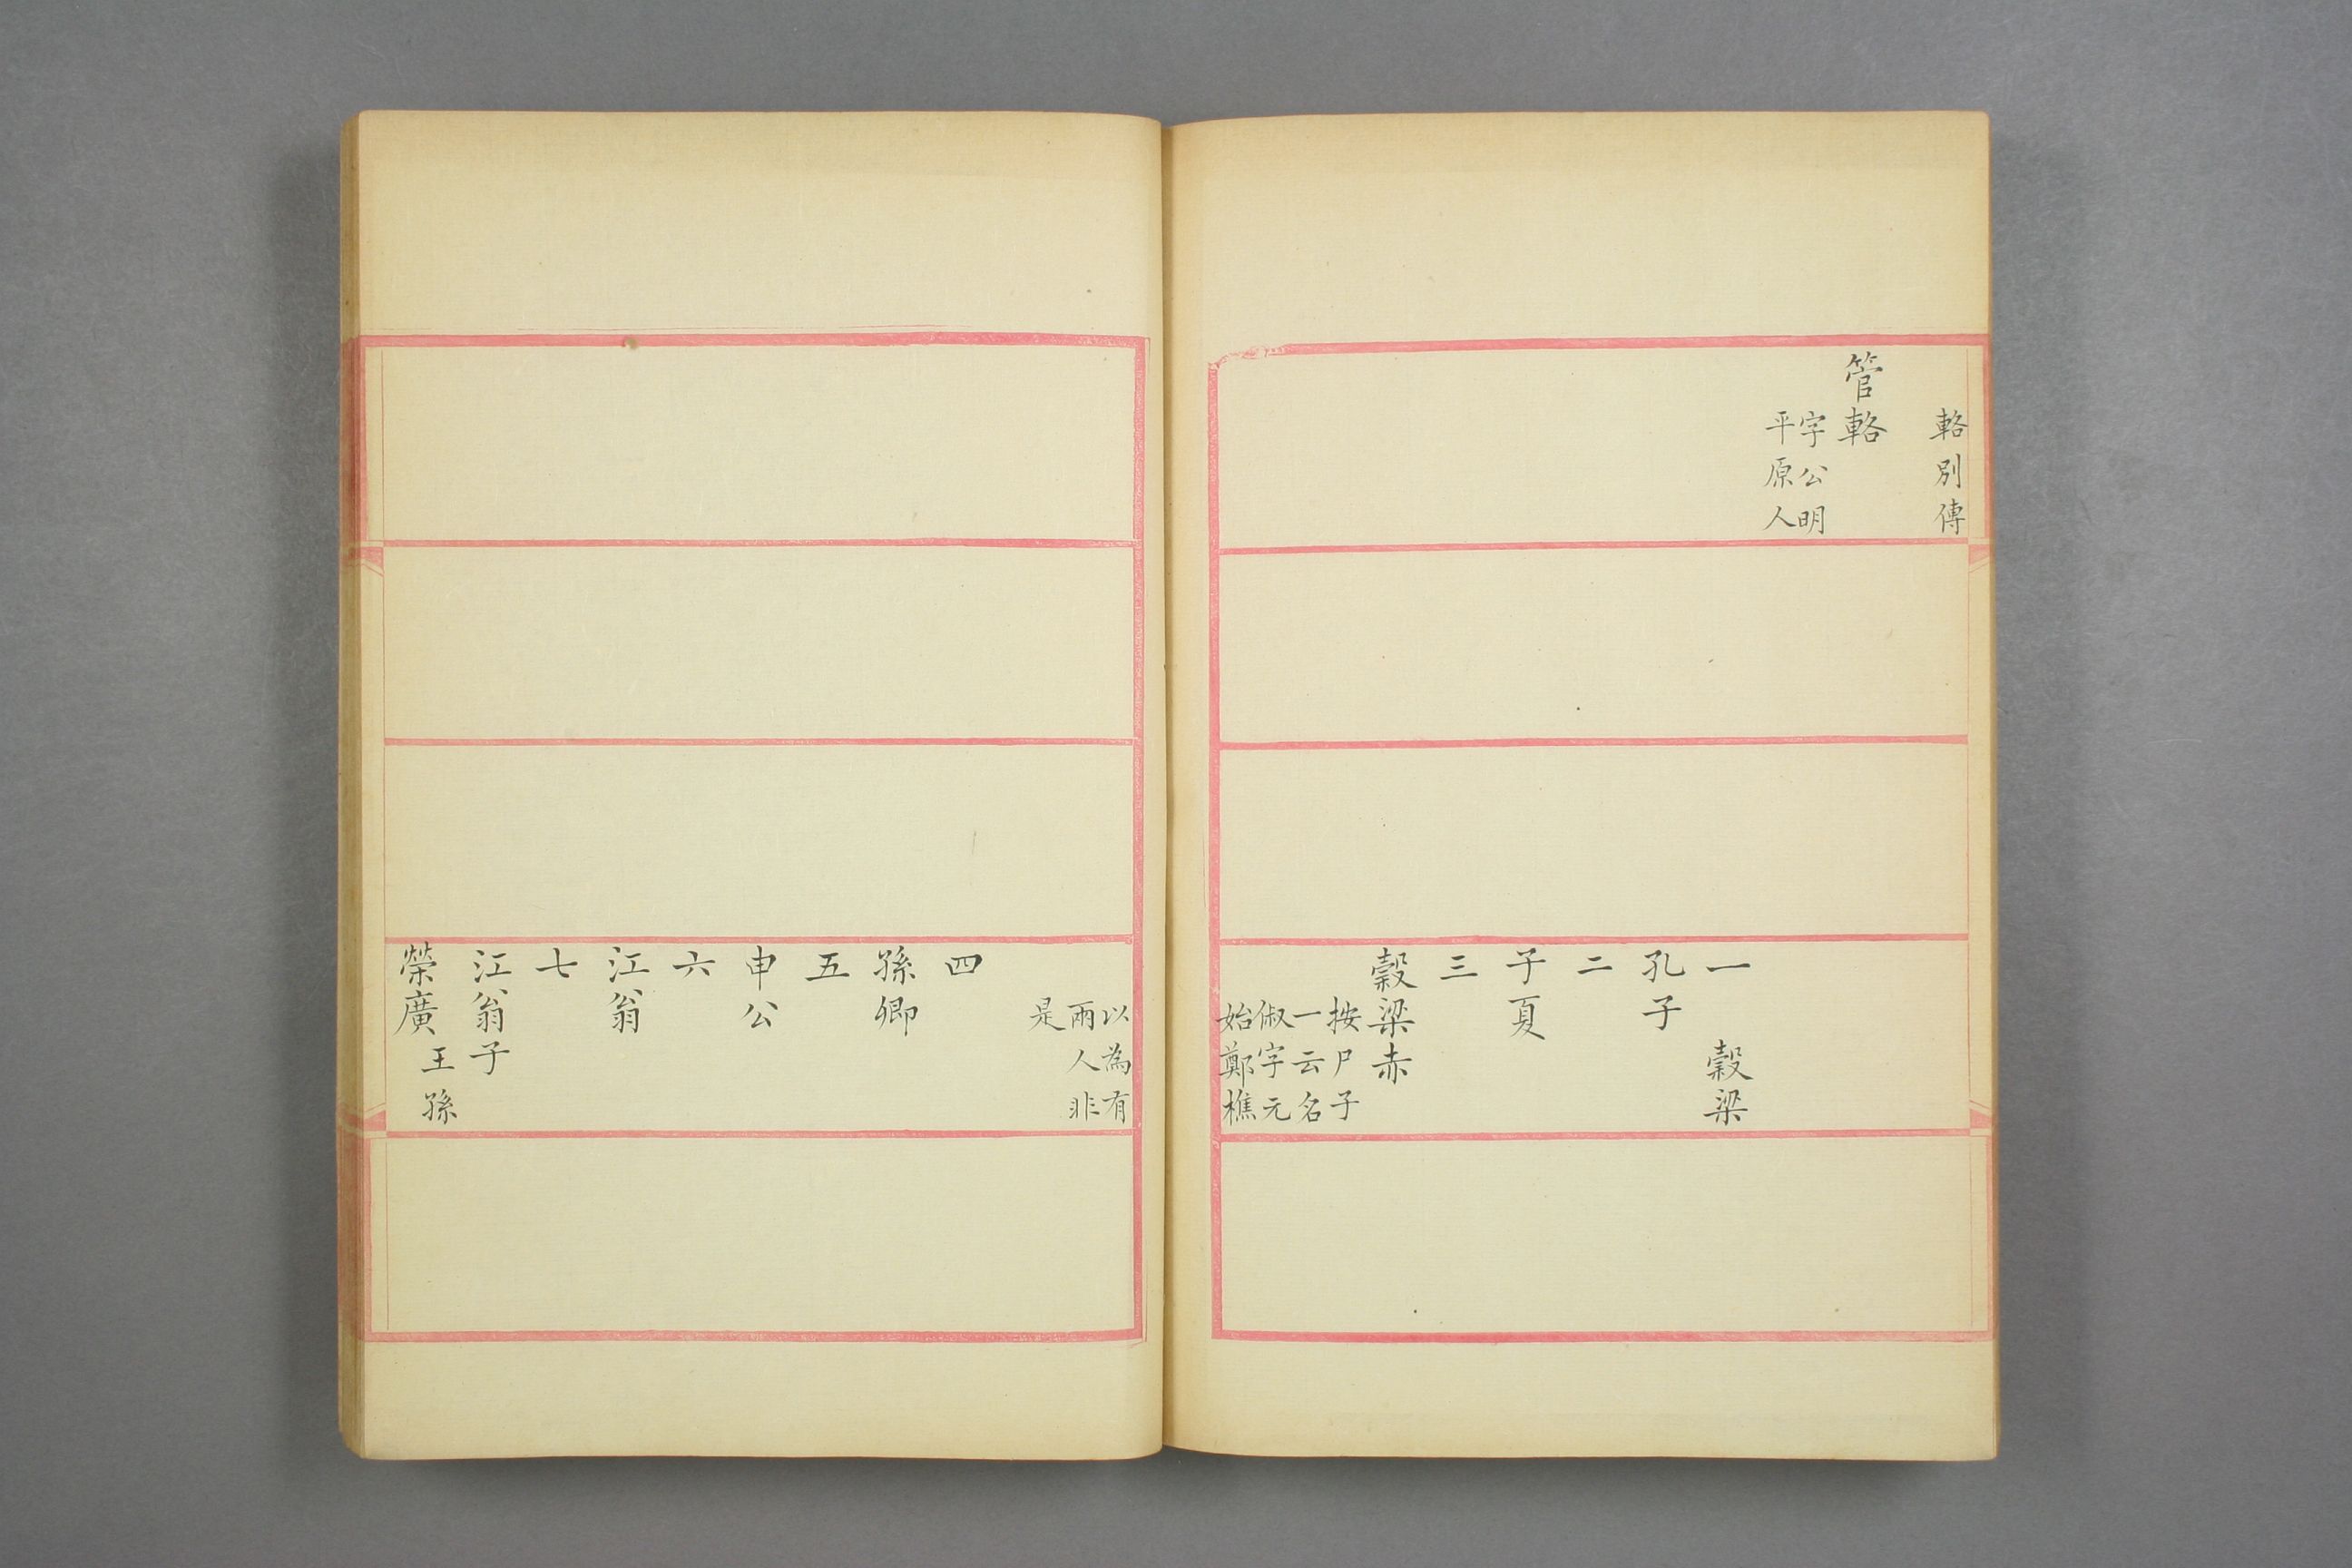 輅別傳
管輅
字公明
平原人
一 穀梁
孔子
二
子夏
三
穀梁赤
按尸子
一云名
俶字元
始鄭樵
以為有
兩人非
是
四
孫卿
五
申公
六
江翁
七
江翁子
榮廣
王孫